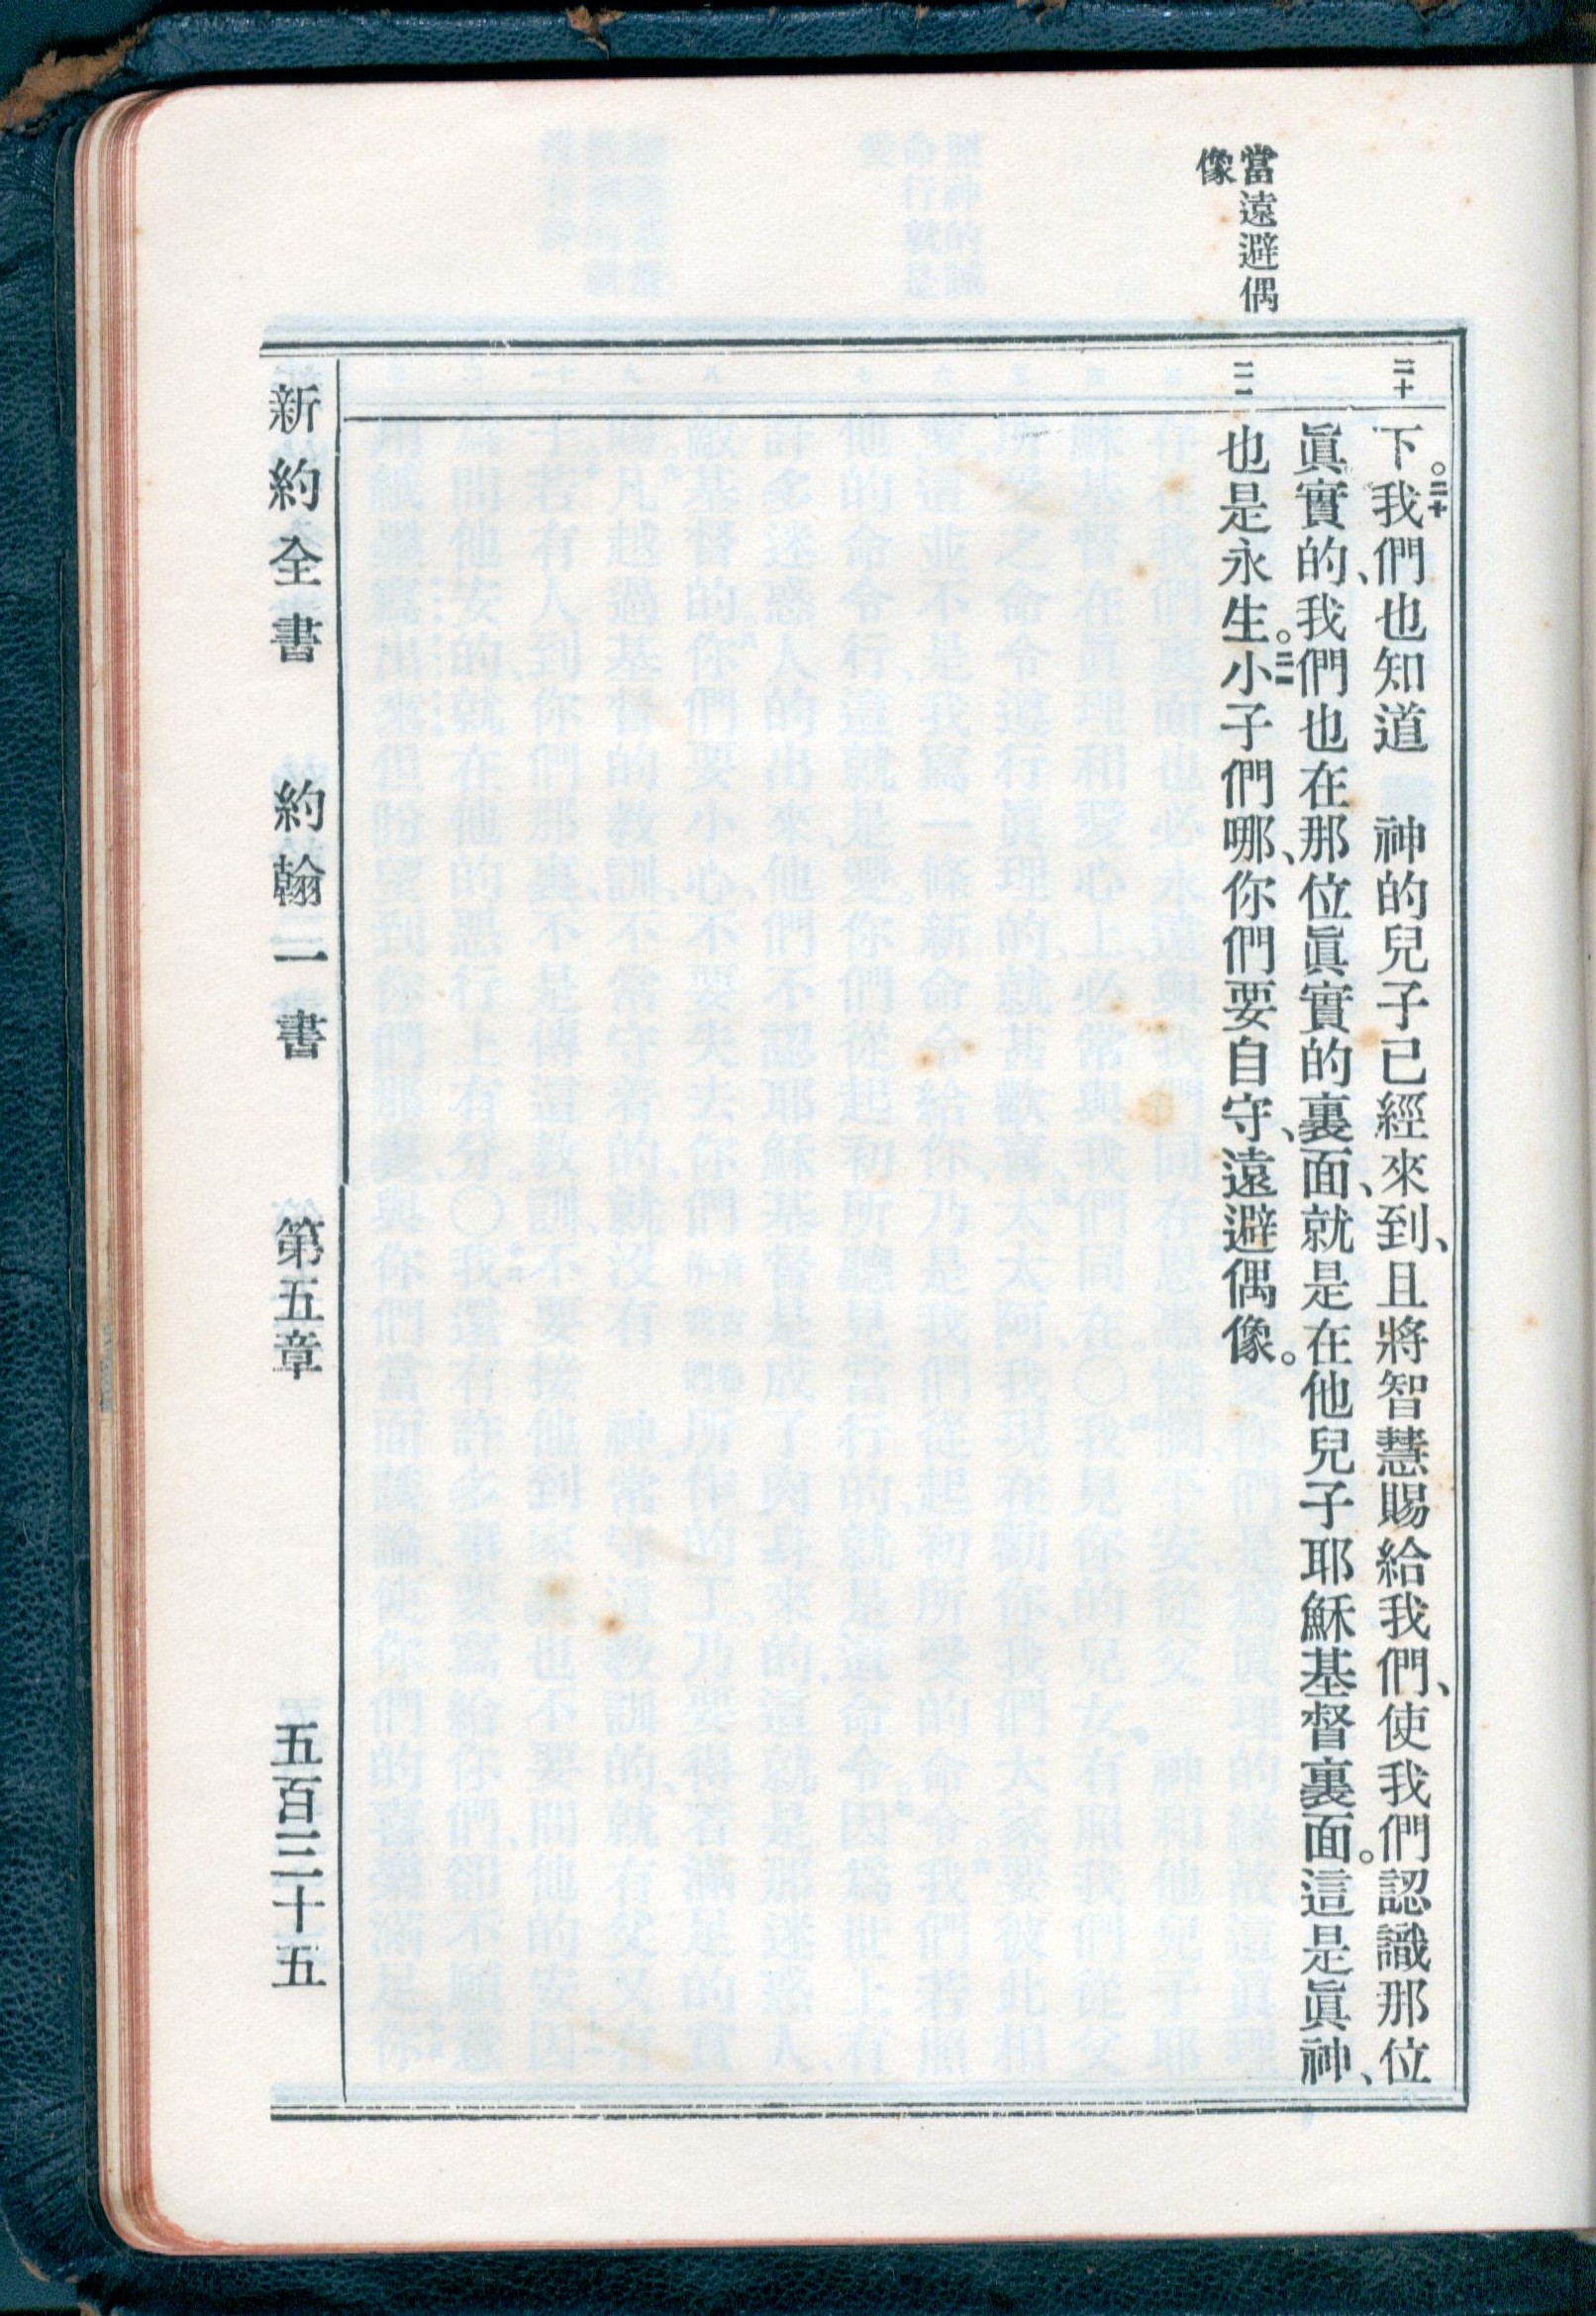 當遠避偶
像
二十
下。二十我們也知道　神的兒子已經來到、且將智慧賜給我們、使我們認識那位
眞實的、我們也在那位眞實的裏面、就是在他兒子耶穌基督裏面。這是眞神、
二一
也是永生。二一小子們哪、你們要自守、遠避偶像。
新約全書　約翰一書　第五章　五百三十五